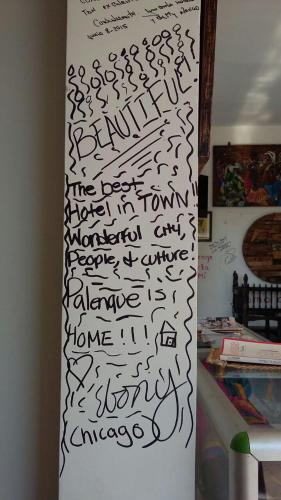 BEAUTIFUL!
The best
Hotel in TOWN!!
Wonderful city,
People, & culture!
Palenque is
HOME!!!
wony
(chicago)